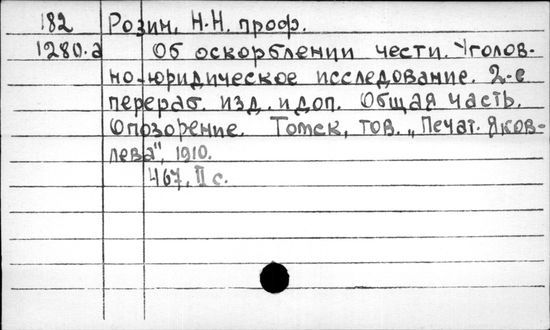 182 Розин, Н.Н. проф.
1280.а Об оскорблении чести. Уголов-
но-юридическое исследование. 2-е
перераб. изд. и доп. Общая часть.
Опозорение. Томск, тов. „Печат. Яков-
лева", 1910.
467, II с.